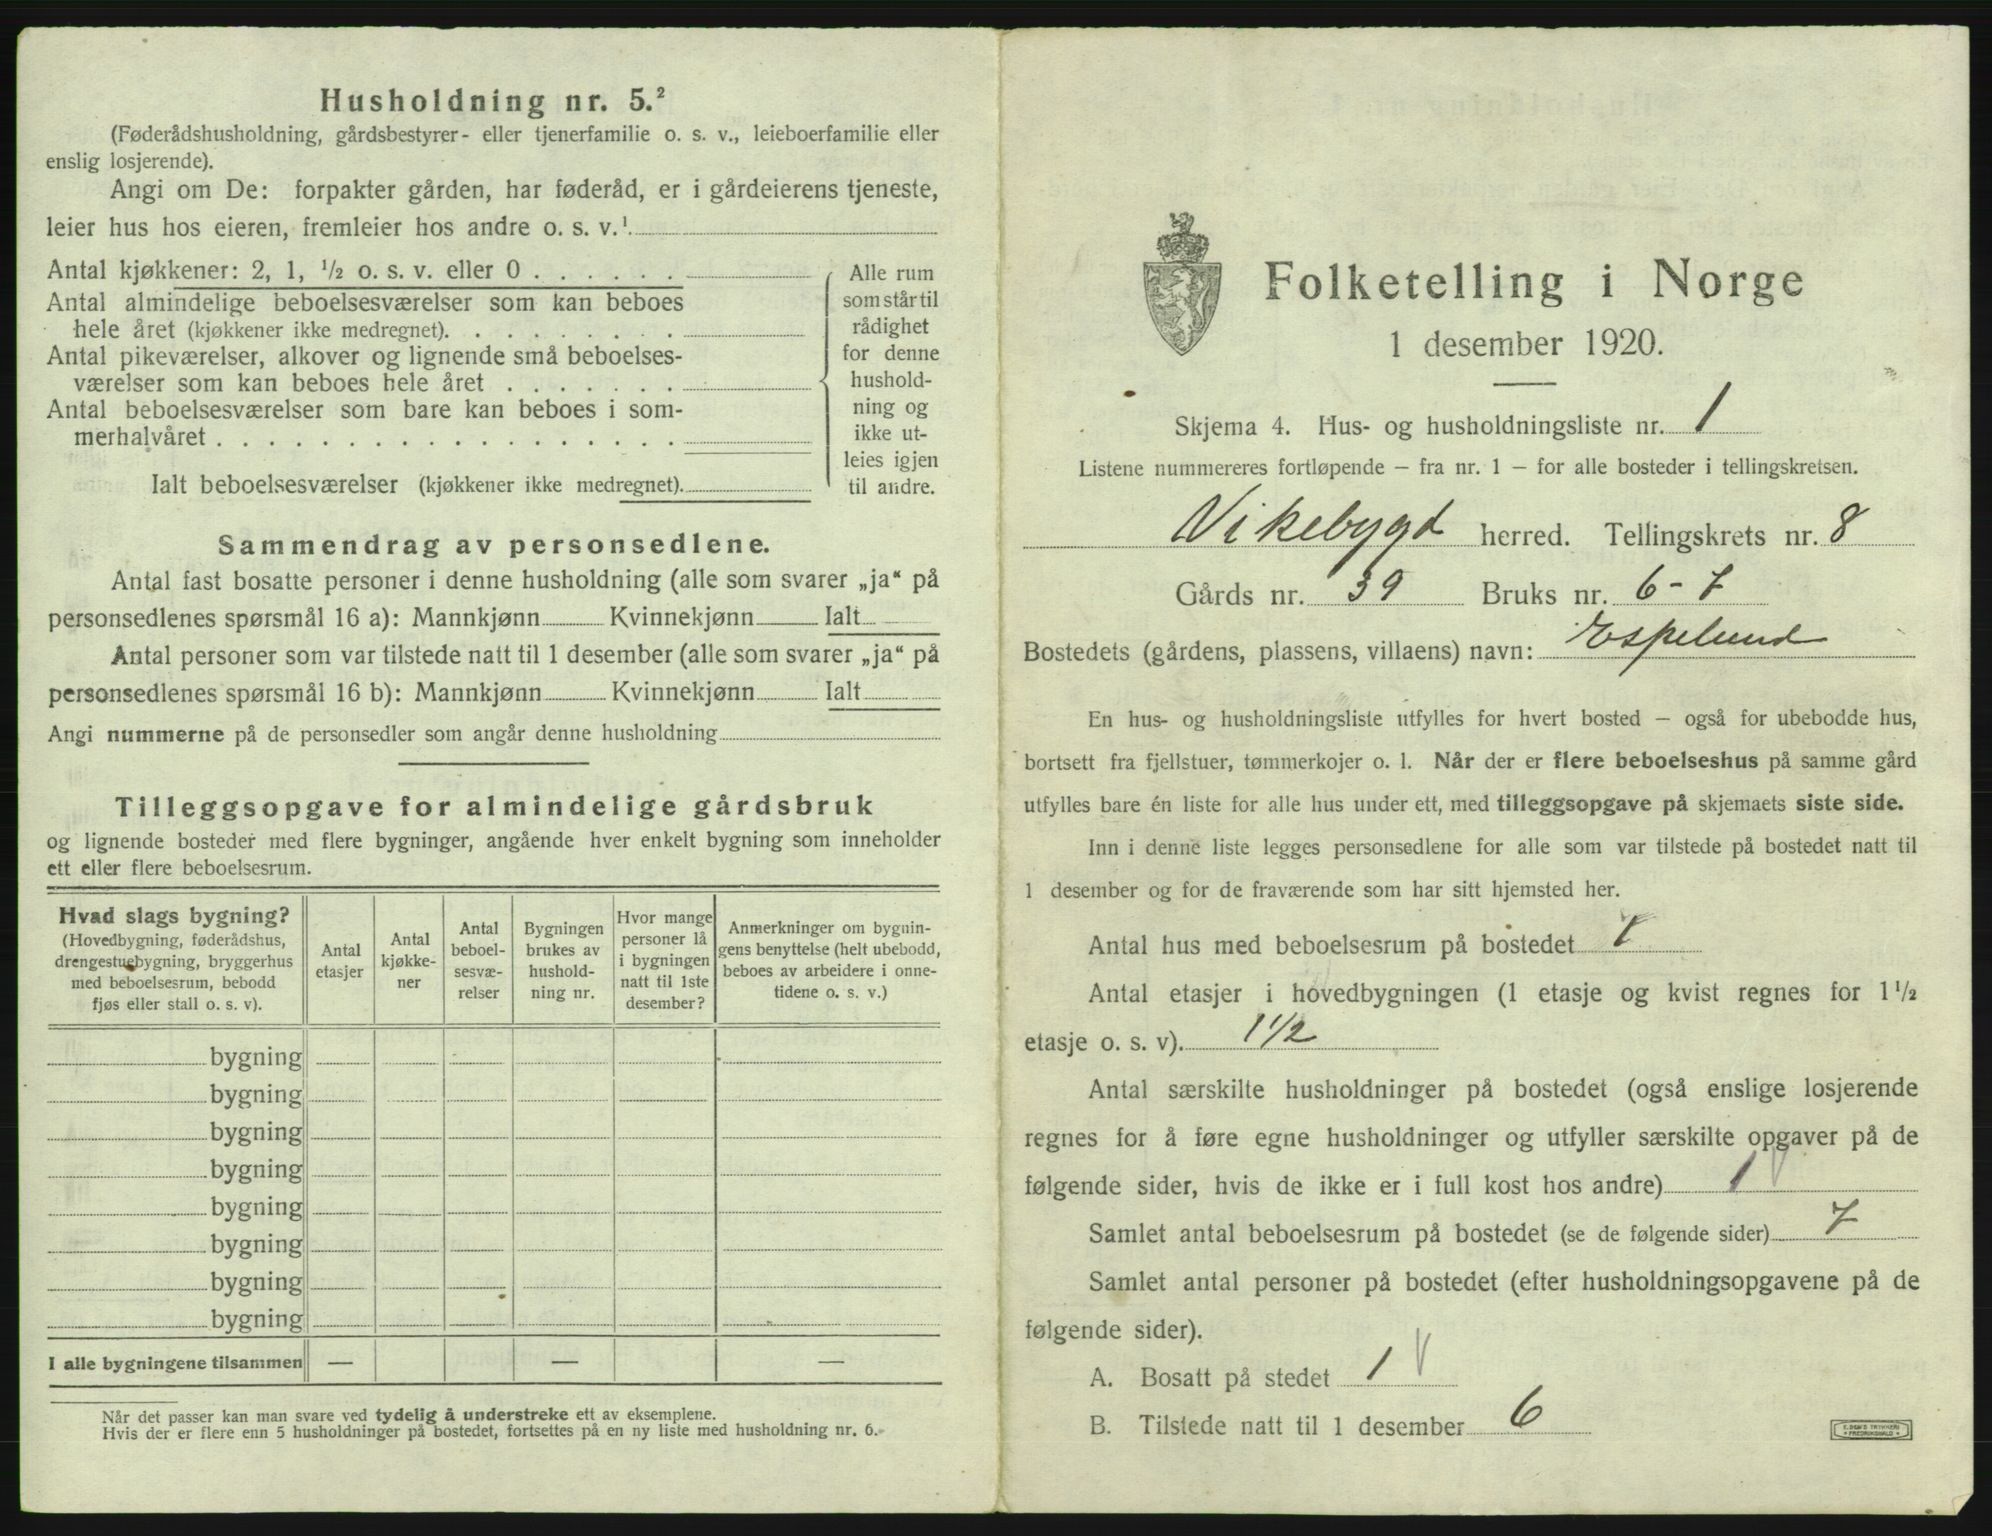 Husholdning nr. 5.²
(Føderådshusholdning, gårdsbestyrer- eller tjenerfamilie o. s. v., leieboerfamilie eller
enslig losjerende).
Angi om De: forpakter gården, har føderåd, er i gårdeierens tjeneste,
leier hus hos eieren, fremleier hos andre o. s. v.¹
Antal kjøkkener: 2, 1, ½ o. s. v. eller 0 . . . . . .
Antal almindelige beboelsesværelser som kan beboes
hele året (kjøkkener ikke medregnet). . . . . . . . .
Antal pikeværelser, alkover og lignende små beboelses-
værelser som kan beboes hele året . . . . . . .
Antal beboelsesværelser som bare kan beboes i som-
merhalvåret . . . . . . . . . . . . . . . . . .
Ialt beboelsesværelser (kjøkkener ikke medregnet).
Alle rum
som står til
rådighet
for denne
hushold-
ning og
ikke ut-
leies igjen
til andre.
Sammendrag av personsedlene.
Antal fast bosatte personer i denne husholdning (alle som svarer „ja“ på
personsedlenes spørsmål 16 a): Mannkjønn Kvinnekjønn Ialt
Antal personer som var tilstede natt til 1 desember (alle som svarer „ja“ på
personsedlenes spørsmål 16 b): Mannkjønn Kvinnekjønn Ialt
Angi nummerne på de personsedler som angår denne husholdning
Tilleggsopgave for almindelige gårdsbruk
og lignende bosteder med flere bygninger, angående hver enkelt bygning som inneholder
ett eller flere beboelsesrum.
Hvad slags bygning?
(Hovedbygning, føderådshus,
drengestuebygning, bryggerhus
med beboelsesrum, bebodd
fjøs eller stall o. s. v).
Antal
etasjer
Antal
kjøkke-
ner
Antal
beboel-
sesvæ-
relser
Bygningen
brukes av
hushold-
ning nr.
Hvor mange
personer lå
i bygningen
natt til 1ste
desember?
Anmerkninger om bygnin-
gens benyttelse (helt ubebodd,
beboes av arbeidere i onne-
tidene o. s. v.)
bygning
bygning
bygning
bygning
bygning
bygning
bygning
bygning
I alle bygningene tilsammen — — —
Når det passer kan man svare ved tydelig å understreke ett av eksemplene.
Hvis der er flere enn 5 husholdninger på bostedet, fortsettes på en ny liste med husholdning nr. 6.
Folketelling i Norge
1 desember 1920.
Skjema 4. Hus- og husholdningsliste nr. 1
Listene nummereres fortløpende – fra nr. 1 – for alle bosteder i tellingskretsen.
Vikebygd herred. Tellingskrets nr. 8
Gårds nr. 39 Bruks nr. 6-7
Bostedets (gårdens, plassens, villaens) navn: Espelund
En hus- og husholdningsliste utfylles for hvert bosted – også for ubebodde hus,
bortsett fra fjellstuer, tømmerkojer o. l. Når der er flere beboelseshus på samme gård
utfylles bare én liste for alle hus under ett, med tilleggsopgave på skjemaets siste side.
Inn i denne liste legges personsedlene for alle som var tilstede på bostedet natt til
1 desember og for de fraværende som har sitt hjemsted her.
Antal hus med beboelsesrum på bostedet 1
Antal etasjer i hovedbygningen (1 etasje og kvist regnes for 1½
etasje o. s. v). 1 1/2
Antal særskilte husholdninger på bostedet (også enslige losjerende
regnes for å føre egne husholdninger og utfyller særskilte opgaver på de
følgende sider, hvis de ikke er i full kost hos andre) 1
Samlet antal beboelsesrum på bostedet (se de følgende sider) 7
Samlet antal personer på bostedet (efter husholdningsopgavene på de
følgende sider).
A. Bosatt på stedet 1
B. Tilstede natt til 1 desember 6